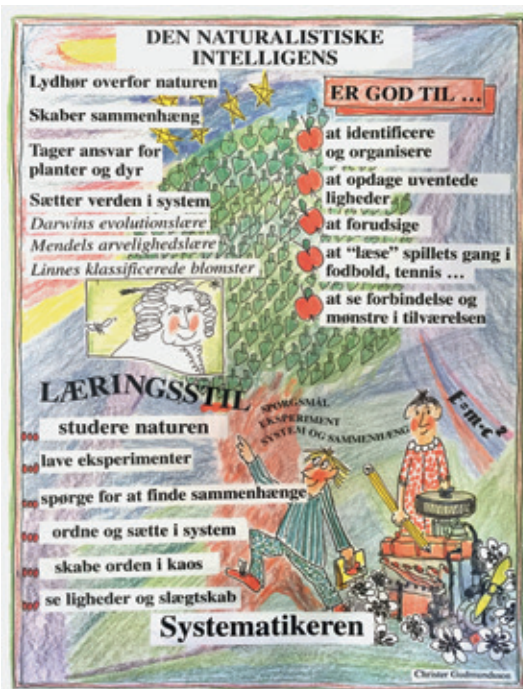 DEN NATURALISTISKE
INTELLIGENS
Lydhør overfor naturen
Skaber sammenhæng
Tager ansvar for
planter og dyr
Sætter verden i system
Darwins evolutionslære
Mendels arvelighedslære
Linnes klassificerede blomster
ER GOD TIL ...
at identificere
og organisere
at opdage uventede
ligheder
at forudsige
at "læse" spillets gang i
fodbold, tennis ...
at se forbindelse og
mønstre i tilværelsen
LÆRINGSSTIL
studere naturen
lave eksperimenter
spørge for at finde sammenhænge
ordne og sætte i system
skabe orden i kaos
se ligheder og slægtskab
SPØRGSMÅL
EKSPERIMENT
SYSTEM OG SAMMENHÆNG
E=m·c²
Systematikeren
Christer Gudmundsson